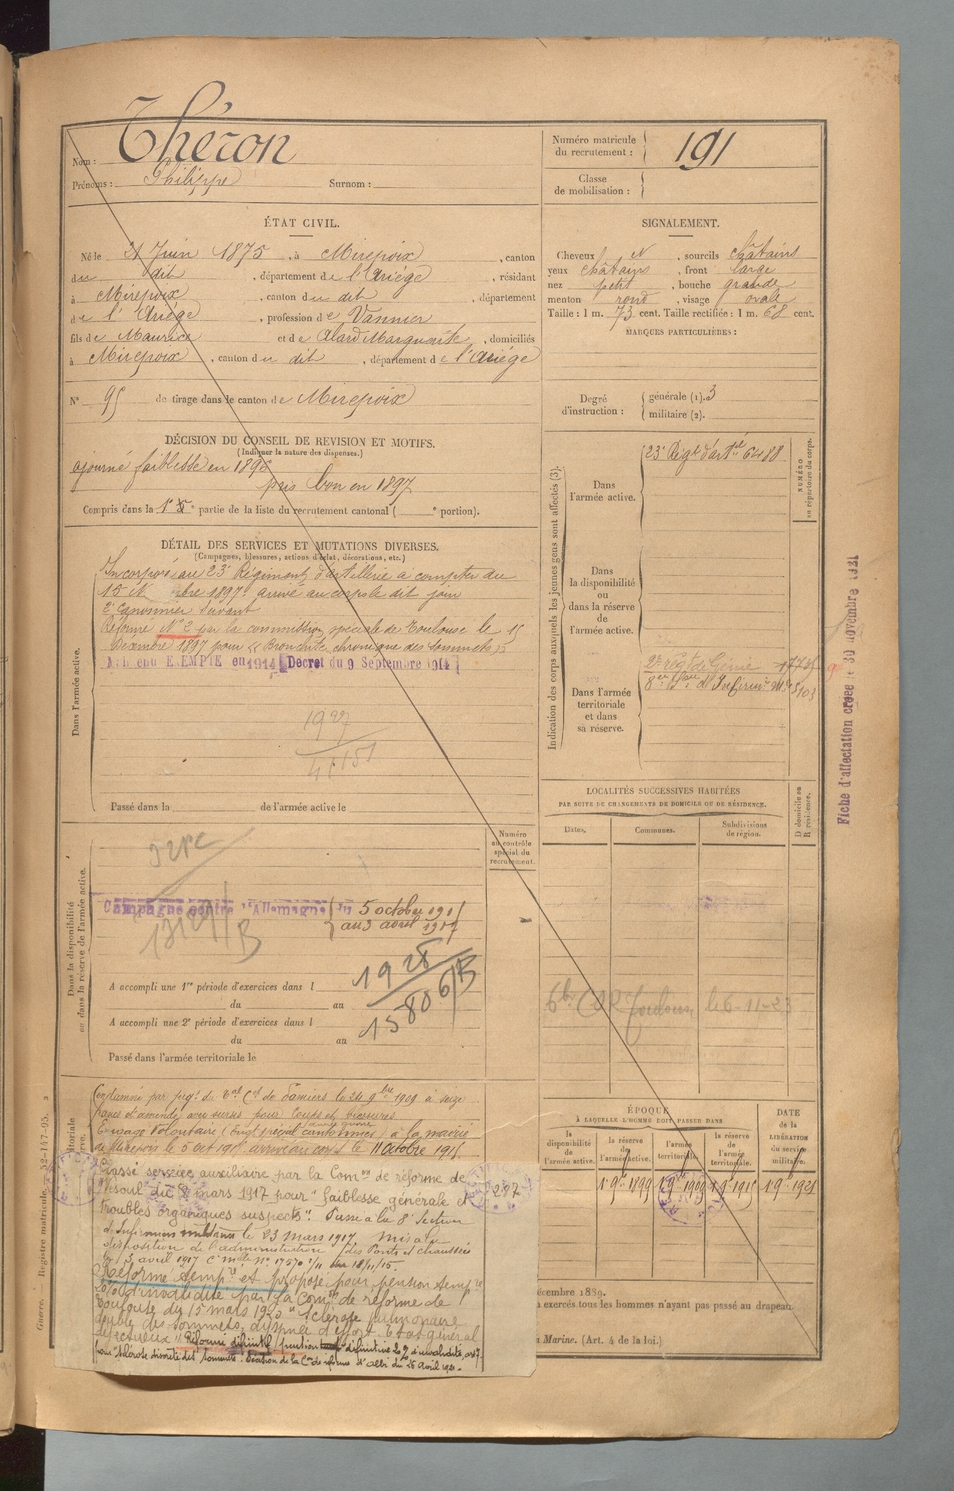 Nom : Théron
Prénoms : Philippe Surnom :
Numéro matricule du recrutement : 191
Classe de mobilisation :
ÉTAT CIVIL.
Né le 21 Juin 1875, à Mirepoix, canton
du dit, département de l'Ariége, résidant
à Mirepoix, canton du dit, département
de l'Ariége, profession de Vannier
fils de Maurice et de Alard Marguerite, domiciliés
à Mirepoix, canton du dit, département de l'Ariége
N° 95 de tirage dans le canton de Mirepoix
SIGNALEMENT.
Cheveux N, sourcils châtains
yeux châtains, front large
nez petit, bouche grande
menton rond, visage ovale
Taille : 1 m. 73 cent. Taille rectifiée : 1 m. 68 cent.
MARQUES PARTICULIÈRES :
Degré d'instruction : générale (1). 3
militaire (2).
DÉCISION DU CONSEIL DE REVISION ET MOTIFS.
(Indiquer la nature des dispenses.)
ajourné faiblesse en 1896
puis bon en 1897
Compris dans la 1e partie de la liste du recrutement cantonal ( e portion).
DÉTAIL DES SERVICES ET MUTATIONS DIVERSES.
(Campagnes, blessures, actions d'éclat, décorations, etc.)
Dans l'armée active.
Incorporé au 23e Régiment d'artillerie à compter du
15 N bre 1897. arrivé au corps le dit jour
2e Canonnier Suivant
Réformé N° 2 par la commission spéciale de Toulouse le 15
Décembre 1897 pour « Bronchite chronique des sommets »
EXEMPTÉ en 1914 Décret du 9 Septembre 1914
1927
Passé dans la de l'armée active le
Indication des corps auxquels les jeunes gens sont affectés (3).
NUMÉRO au répertoire du corps.
Dans l'armée active.
23e Régt d'artie 6488
Dans la disponibilité ou dans la réserve de l'armée active.
Dans l'armée territoriale et dans sa réserve.
2e régt de Génie
Fiche d'affectation créée le 30 novembre 1921
LOCALITÉS SUCCESSIVES HABITÉES
PAR SUITE DE CHANGEMENTS DE DOMICILE OU DE RÉSIDENCE.
Dates. Communes. Subdivisions de région. D domicile ou R résidence.
le 6-11-23
Dans la disponibilité ou dans la réserve de l'armée active.
Numéro au contrôle spécial du recrutement.
Campagne contre l'Allemagne du 5 octobre 191
au 3 avril 1917
1928
A accompli une 1re période d'exercices dans l
du au
A accompli une 2e période d'exercices dans l
du au
Passé dans l'armée territoriale le
Condamné par jugt du Bal Cel de Pamiers le 24 9bre 1909 à seize
francs d'amende avec sursis pour Coups et blessures
à la mairie
de Mirepoix le 5 oct 191 arrivé au corps le 11 octobre 1915
Classé service auxiliaire par la Comon de réforme de
Vesoul du 8 mars 1917 pour "faiblesse générale et
troubles organiques suspects". Passé à la 8e section
d'Infirmiers militaires le 23 mars 1917 mis à la
disposition de l'administration des Ponts et chaussées
le 3 avril 1917
Réformé tempre et proposé pour pension tempre
d'invalidité par la Comon de réforme de
Toulouse du 15 mars 1920 "sclérose pulmonaire
double des sommets, dyspnée d'effort. Etat général
défectueux". Réformé définitif
Décision de la Con de réforme d'Albi du 26 avril 1921.
287
ÉPOQUE
À LAQUELLE L'HOMME DOIT PASSER DANS
la disponibilité de l'armée active. la réserve de l'armée active. l'armée territoriale. la réserve de l'armée territoriale.
DATE DE LA LIBÉRATION du service militaire.
1 9bre 1899 1 9bre 1909 1 9bre 1915 1 9bre 1921
décembre 1889.
n exercés tous les hommes n'ayant pas passé au drapeau.
a Marine. (Art. 4 de la loi.)
Guerre. Registre matricule.